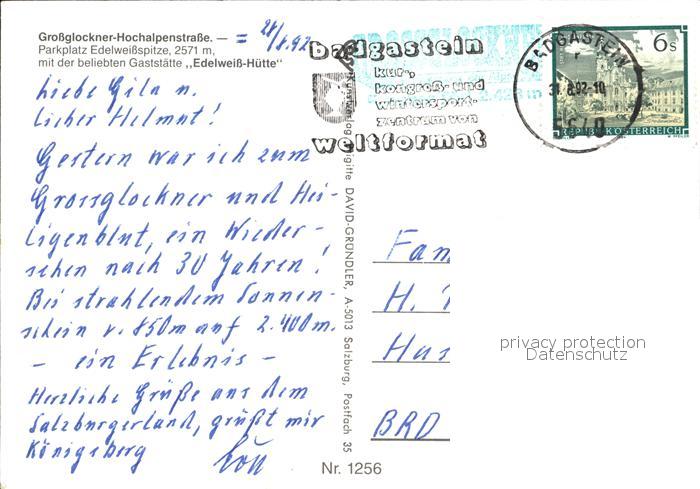 Großglockner-Hochalpenstraße. —
Parkplatz Edelweißspitze, 2571 m,
mit der beliebten Gaststätte „Edelweiß-Hütte"
= 28/8.92
Liebe Gila u.
Lieber Helmut!
Gestern war ich zum
Grossglockner und Hei-
ligenblut, ein Wieder-
sehen nach 30 Jahren!
Bei strahlendem Sonnen-
schein v. 850m auf 2.400m.
- ein Erlebnis -
Herzliche Grüße aus dem
Salzburgerland, grüßt mir
Königsberg
badgastein
kur-,
kongreß- und
wintersport-
zentrum von
weltformat
BADGASTEIN
31.8.92-10
5640
6s
REPUBLIK ÖSTERREICH
Kunstverlag Brigitte DAVID-GRÜNDLER, A-5013 Salzburg, Postfach 35
Fam
H.
Has
BRD
privacy protection
Datenschutz
Nr. 1256